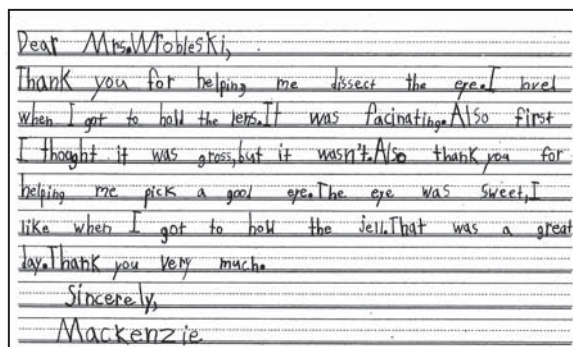 Dear Mrs.Wrobleski,
Thank you for helping me dissect the eye.I loved
when I got to hold the lens.It was facinating.Also first
I thought it was gross,but it wasn't.Also thank you for
helping me pick a good eye.The eye was sweet,I
like when I got to hold the jell.That was a great
day.Thank you very much.
Sincerely,
Mackenzie